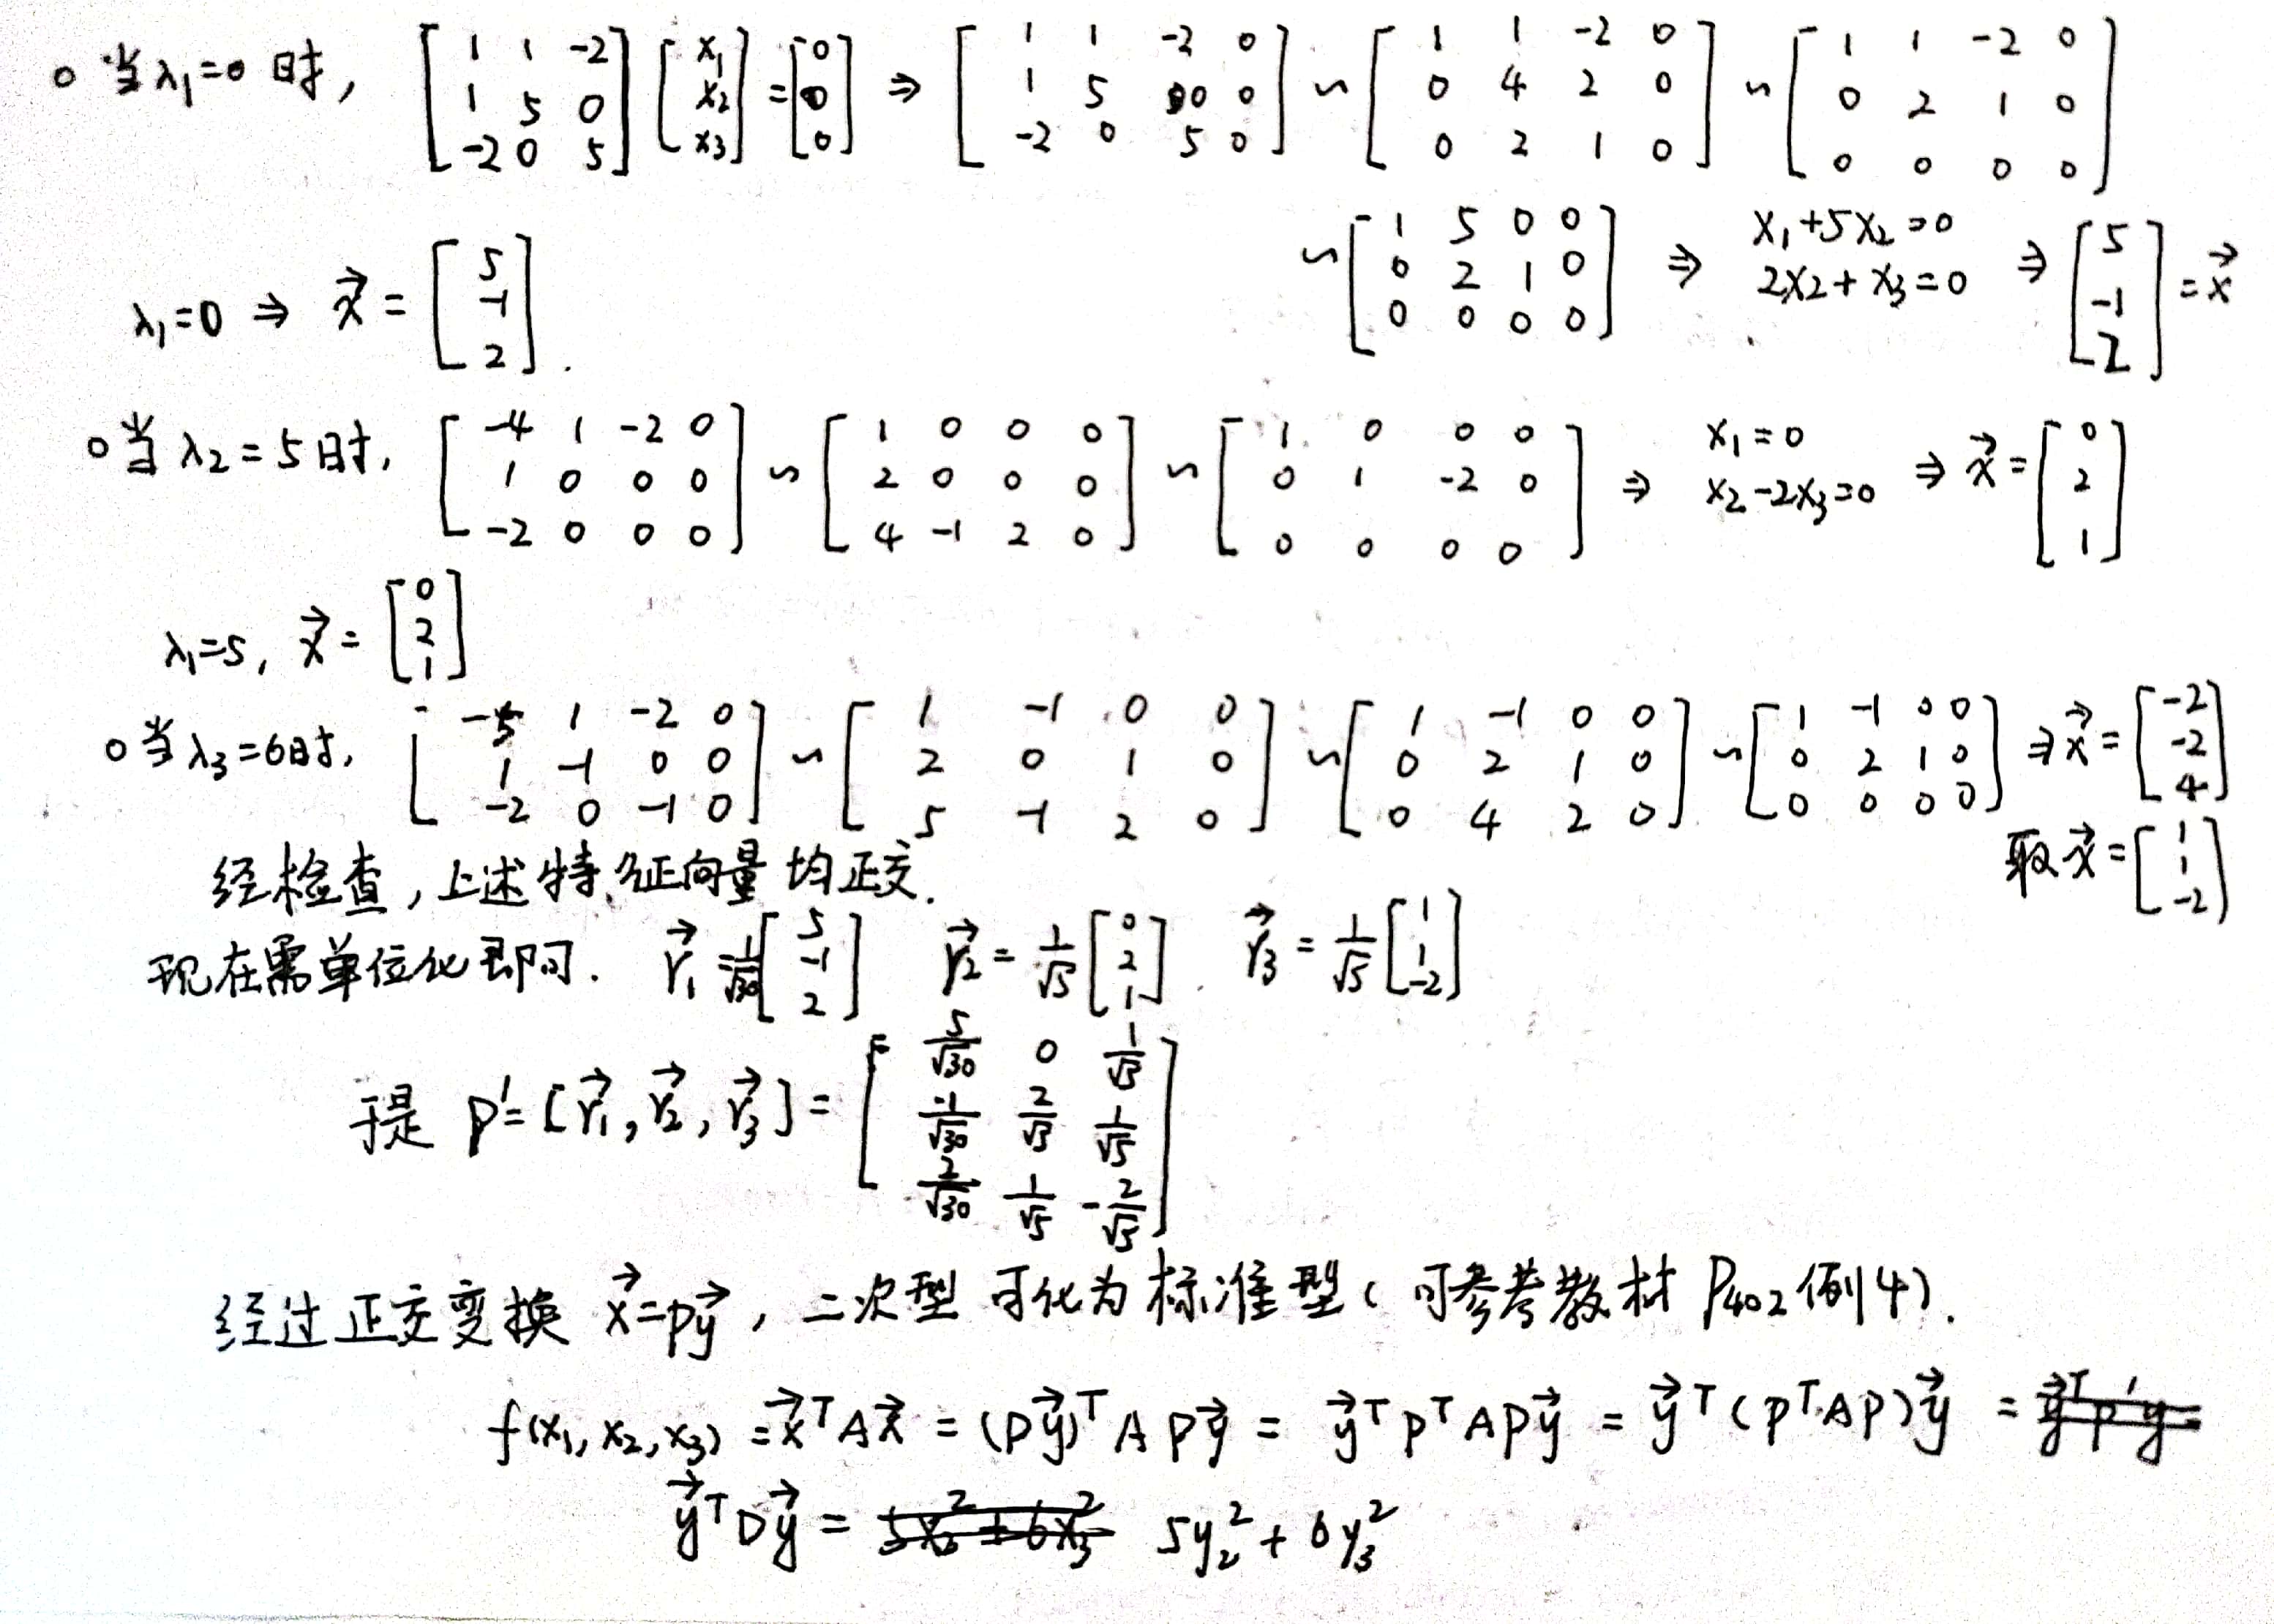 ○ 当λ₁=0 时, [1 1 -2; 1 5 0; -2 0 5] [x₁; x₂; x₃] = [0; 0; 0] ⇒ [1 1 -2 0; 1 5 0 0; -2 0 5 0] ~ [1 1 -2 0; 0 4 2 0; 0 2 1 0] ~ [1 1 -2 0; 0 2 1 0; 0 0 0 0]
~ [1 5 0 0; 0 2 1 0; 0 0 0 0] ⇒ x₁+5x₂=0 2x₂+x₃=0 ⇒ [5; -1; 2] = x⃗
λ₁=0 ⇒ x⃗ = [5; -1; 2].
○ 当 λ₂=5时, [-4 1 -2 0; 1 0 0 0; -2 0 0 0] ~ [1 0 0 0; 2 0 0 0; 4 -1 2 0] ~ [1 0 0 0; 0 1 -2 0; 0 0 0 0] ⇒ x₁=0 x₂-2x₃=0 ⇒ x⃗ = [0; 2; 1]
λ₁=5, x⃗ = [0; 2; 1]
○ 当 λ₃=6时, [-5 1 -2 0; 1 -1 0 0; -2 0 -1 0] ~ [1 -1 0 0; 2 0 1 0; 5 -1 2 0] ~ [1 -1 0 0; 0 2 1 0; 0 4 2 0] ~ [1 -1 0 0; 0 2 1 0; 0 0 0 0] ⇒ x⃗ = [-2; -2; 4]
取 x⃗ = [1; 1; -2]
经检查,上述特征向量均正交.
现在需单位化即可. r⃗₁ = 1/√30 [5; -1; 2] r⃗₂ = 1/√5 [0; 2; 1] r⃗₃ = 1/√5 [1; 1; -2]
于是 P' = [r⃗₁, r⃗₂, r⃗₃] = [5/√30 0 1/√5; -1/√30 2/√5 1/√5; 2/√30 1/√5 -2/√5]
经过正交变换 x⃗=Py⃗, 二次型可化为标准型(可参考教材 P₄₀₂例4).
f(x₁, x₂, x₃) = x⃗ᵀAx⃗ = (Py⃗)ᵀAPy⃗ = y⃗ᵀPᵀAPy⃗ = y⃗ᵀ(PᵀAP)y⃗ =
y⃗ᵀDy⃗ = 5y₂² + 6y₃²